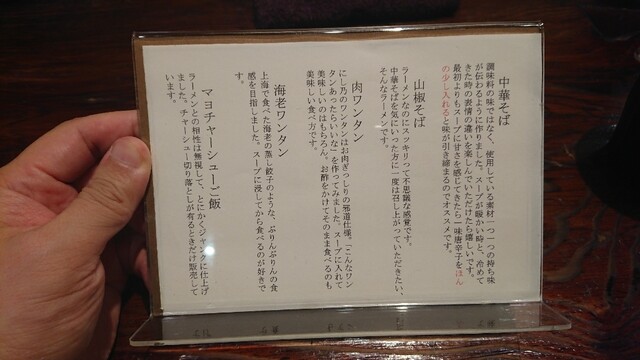 中華そば
調味料の味ではなく、使用している素材一つ一つの持ち味
が伝わるように作りました。スープが暖かい時と、冷めて
きた時の表情の違いを楽しんでいただけたら嬉しいです。
最初よりもスープに甘さを感じてきたら一味唐辛子をほん
の少し入れると味が引き締まるのでオススメです。
山椒そば
ラーメンなのにスッキリって不思議な感覚です。
中華そばを気にいった方に一度は召し上がっていただきたい、
そんなラーメンです。
肉ワンタン
にし乃のワンタンはお肉ぎっしりの邪道仕様。「こんなワン
タンあったらいいな」を作ってみました。スープに入れて
美味しいのはもちろん、お酢をかけてそのまま食べるのも
美味しい食べ方です。
海老ワンタン
上海で食べた海老の蒸し餃子のような、ぷりんぷりんの食
感を目指しました。スープに浸してから食べるのが好きで
す。
マヨチャーシューご飯
ラーメンとの相性は無視して、とにかくジャンクに仕上げ
ました。チャーシュー切り落としが有るときだけ販売して
います。